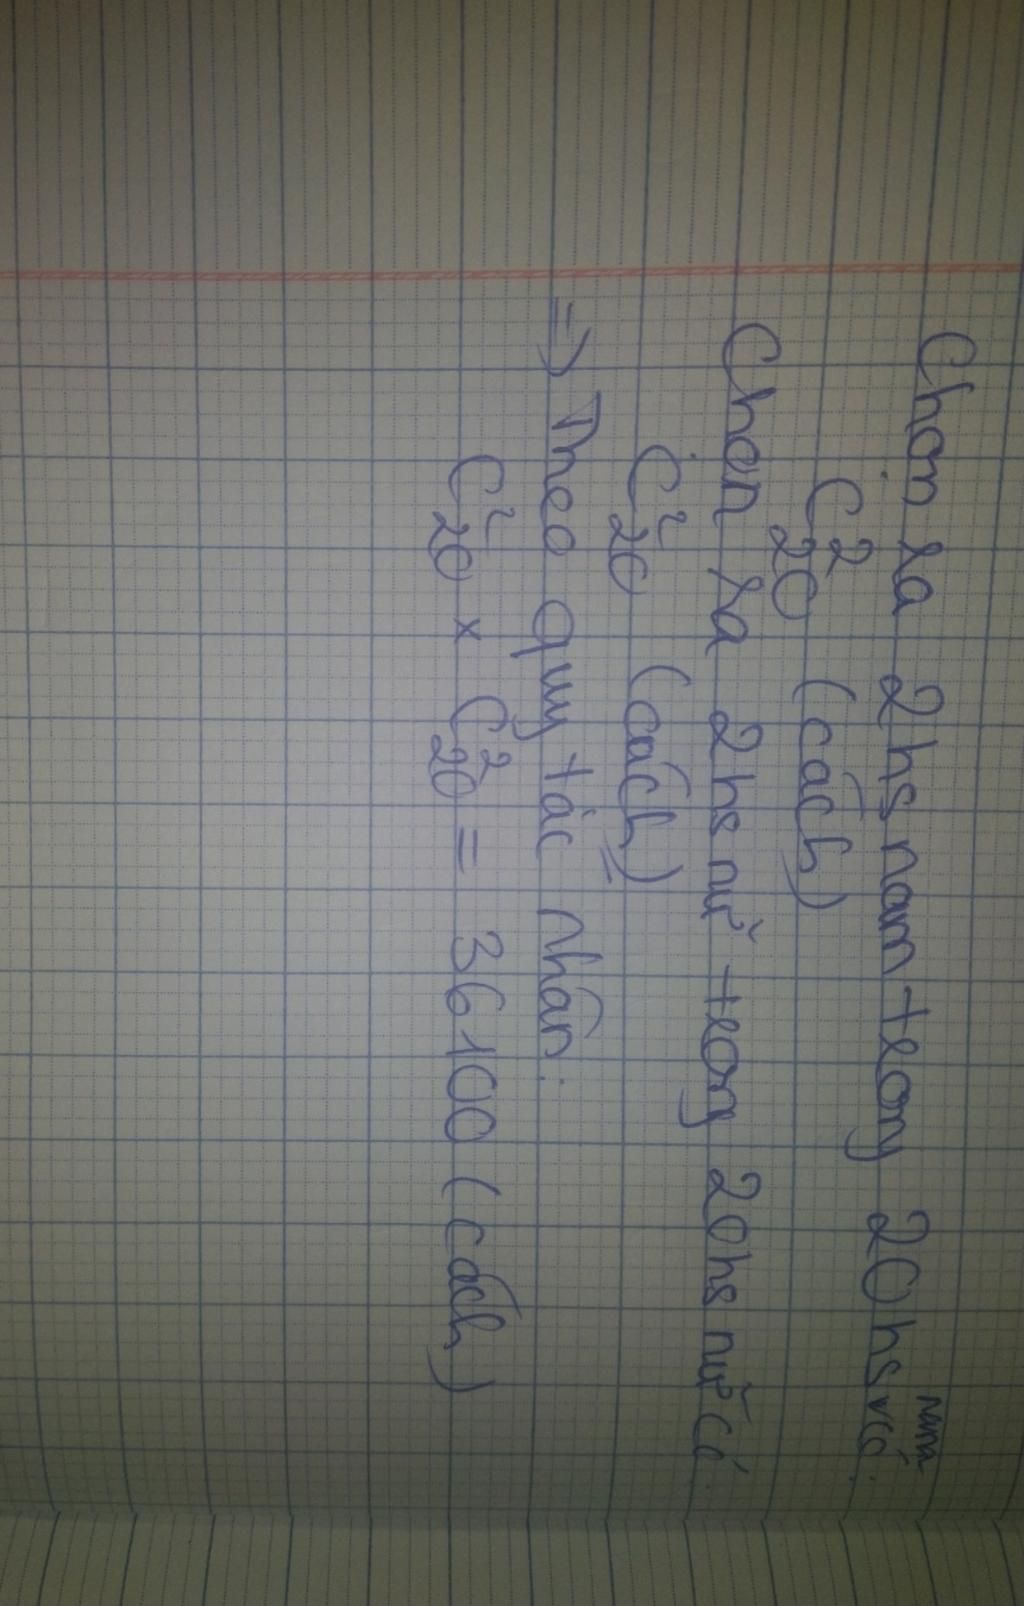 Chọn ra 2 hs nam trong 20 hs nam có:
C²₂₀ (cách)
Chọn ra 2 hs nữ trong 20 hs nữ có:
C²₂₀ (cách)
=> Theo quy tắc nhân:
C²₂₀ x C²₂₀ = 36100 (cách)